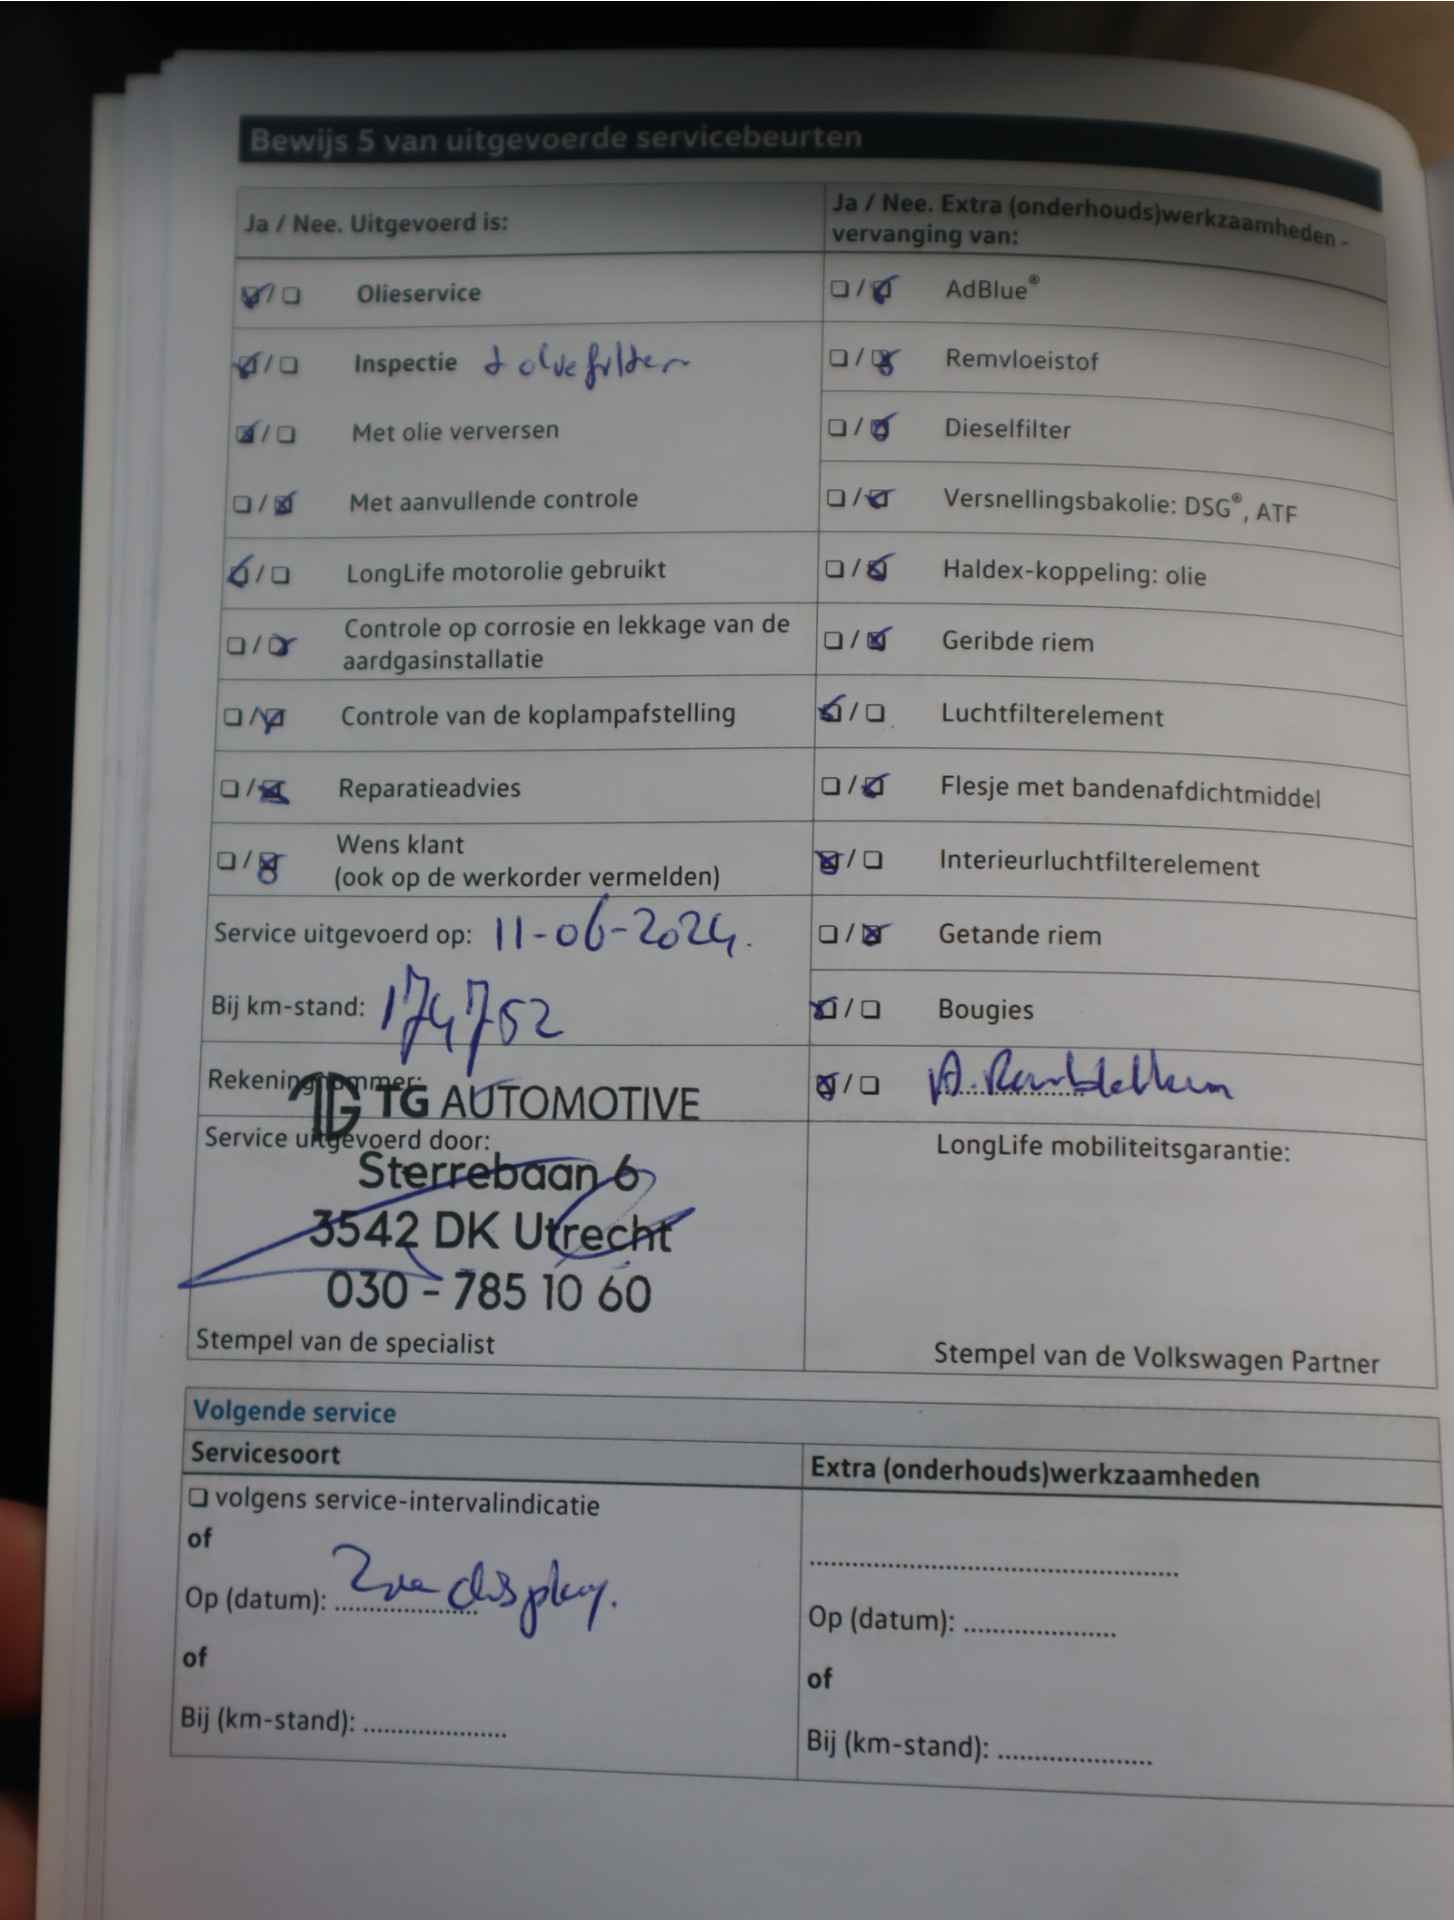 Bewijs 5 van uitgevoerde servicebeurten
Ja / Nee. Uitgevoerd is:
☑/☐ Olieservice
☑/☐ Inspectie + oliefilter
☑/☐ Met olie verversen
☐/☑ Met aanvullende controle
☑/☐ LongLife motorolie gebruikt
☐/☑ Controle op corrosie en lekkage van de
aardgasinstallatie
☐/☑ Controle van de koplampafstelling
☐/☑ Reparatieadvies
☐/☑ Wens klant
(ook op de werkorder vermelden)
Service uitgevoerd op: 11-06-2024.
Bij km-stand: 174752
Rekeningnummer:
TG AUTOMOTIVE
Service uitgevoerd door:
Sterrebaan 6
3542 DK Utrecht
030 - 785 10 60
Stempel van de specialist
Ja / Nee. Extra (onderhouds)werkzaamheden -
vervanging van:
☐/☑ AdBlue®
☐/☑ Remvloeistof
☐/☑ Dieselfilter
☐/☑ Versnellingsbakolie: DSG®, ATF
☐/☑ Haldex-koppeling: olie
☐/☑ Geribde riem
☑/☐ Luchtfilterelement
☐/☑ Flesje met bandenafdichtmiddel
☑/☐ Interieurluchtfilterelement
☐/☑ Getande riem
☑/☐ Bougies
☑/☐
LongLife mobiliteitsgarantie:
Stempel van de Volkswagen Partner
Volgende service
Servicesoort
☐ volgens service-intervalindicatie
of
Op (datum): Zie display.
of
Bij (km-stand): .....................
Extra (onderhouds)werkzaamheden
.......................................................
Op (datum): ......................
of
Bij (km-stand): ......................